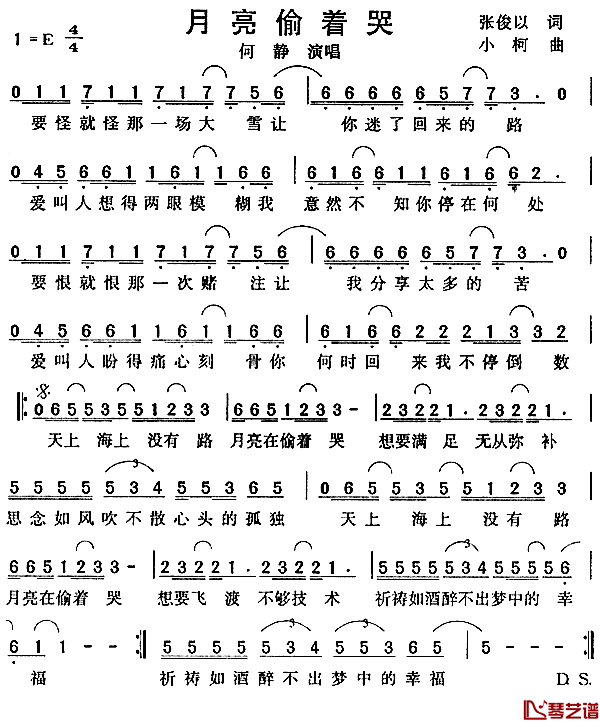 月亮偷着哭
1=E 4/4
何静 演唱
张俊以 词
小柯 曲
0 1 1 7 1 1 7 1 7 7 5 6 | 6 6 6 6 6 5 7 7 3. 0
要怪就怪那一场大 雪让 你迷了回来的 路
0 4 5 6 6 1 1 6 1 1 6 6 | 1 6 6 1 1 6 1 1 6 6 2.
爱叫人想得两眼模 糊我 意然不 知你停在何 处
0 1 1 7 1 1 7 1 7 7 5 6 | 6 6 6 6 6 5 7 7 3. 0
要恨就恨那一次赌 注让 我分享太多的 苦
0 4 5 6 6 1 1 6 1 1 6 6 | 1 6 6 2 2 2 1 3 3 2
爱叫人盼得痛心刻 骨你 何时回 来我不停倒 数
0 6 5 5 3 5 5 1 2 3 3 | 6 6 5 1 2 3 3 - | 2 3 2 2 1. 2 3 2 2 1.
天上 海上 没有 路 月亮在偷着 哭 想要满 足 无从弥 补
5 5 5 5 5 3 4 5 5 3 6 5 | 0 6 5 5 3 5 5 1 2 3 3
思念如风吹不散心头的孤独 天上 海上 没有 路
6 6 5 1 2 3 3 - | 2 3 2 2 1. 2 3 2 2 1. | 5 5 5 5 5 3 4 5 5 5 6
月亮在偷着 哭 想要飞 渡 不够技 术 祈祷如酒醉不出梦中的 幸
6 1 1 - - | 5 5 5 5 5 3 4 5 3 6 5 | 5 - - -
福 祈祷如酒醉不出梦中的幸福 D.S.
琴艺谱